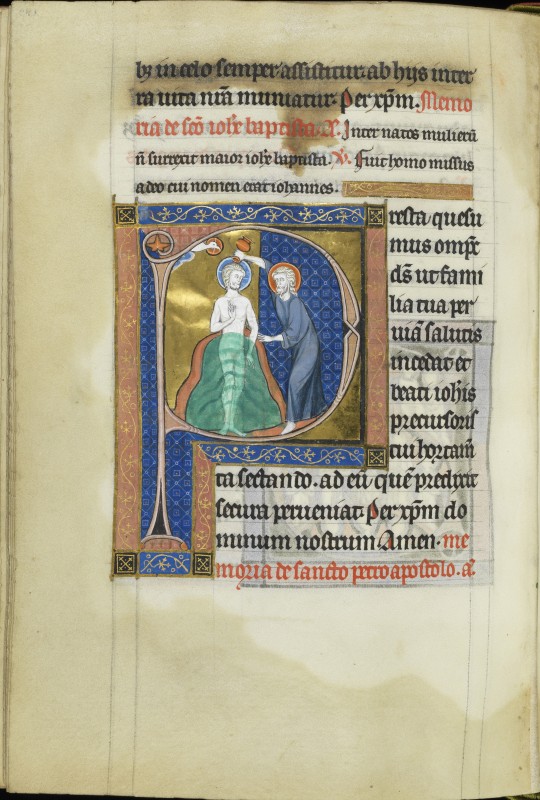 bꝫ in celo semper assistitur. ab hijs in ter
ra uita nr̃a muniatur. Per xp̃m. Memo
ria de sc̃o ioħe baptista. A. Inter natos mulierũ
ñ surrexit maior ioħe baptista. V. Fuit homo missus
a deo cui nomen erat iohannes.
Presta quesu
mus omp̃c
ds̃ ut fami
lia tua per
uiã salutis
incedat et
beati ioħis
precursoris
cui hortam̃
ta sectando. ad eũ quẽ predixit
secura perueniat. Per xp̃m do
minum nostrum Amen. me
moria de sancto petro apostolo. a.